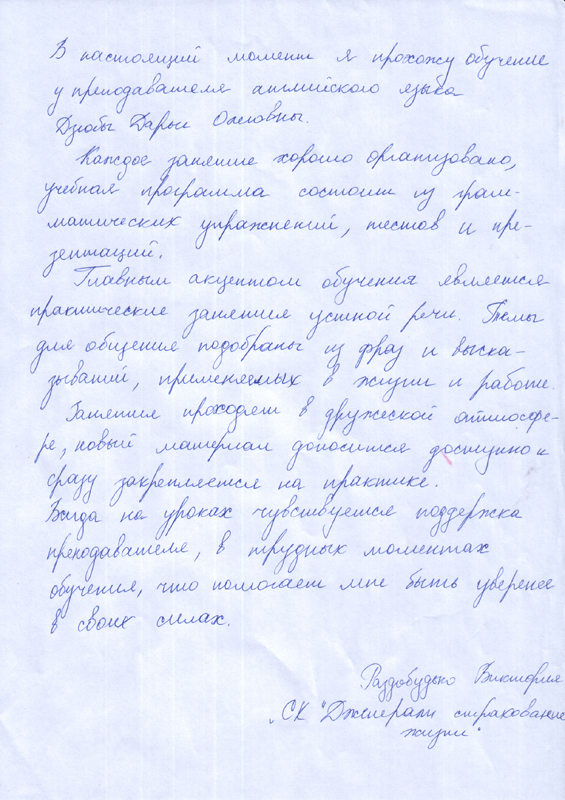 В настоящий момент я прохожу обучение
у преподавателя английского языка
Дзюбы Дарьи Олеговны.
Каждое занятие хорошо организовано,
учебная программа состоит из грам-
матических упражнений, тестов и пре-
зентаций.
Главным акцентом обучения является
практические занятия устной речи. Темы
для общения подобраны из фраз и выска-
зываний, применяемых в жизни и работе.
Занятия проходят в дружеской атмосфе-
ре, новый материал доносится доступно и
сразу закрепляется на практике.
Всегда на уроках чувствуется поддержка
преподавателя, в трудных моментах
обучения, что помогает мне быть уверенее
в своих силах.
Раздобудько Виктория
„СК "Дженерали страхование
жизни"